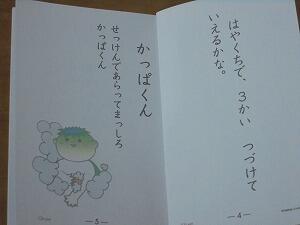 はやくちで、3かい つづけて
いえるかな。
—4—
かっぱくん
せっけんであらってまっしろ
かっぱくん
—5—